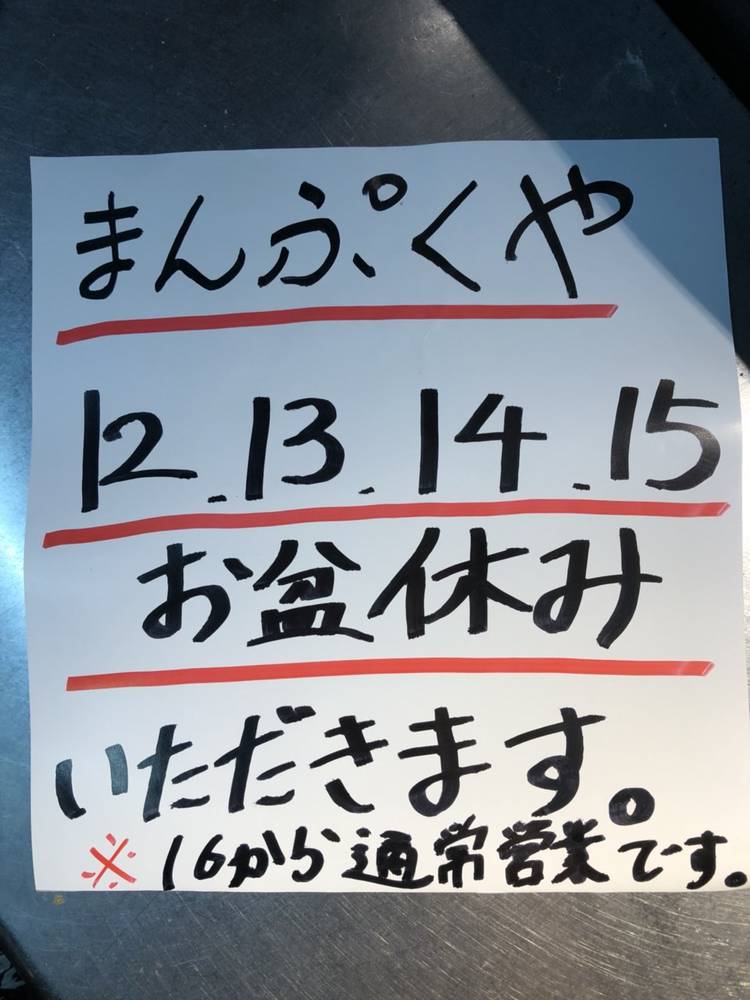 まんぷくや
12.13.14.15
お盆休み
いただきます。
※16から通常営業です。